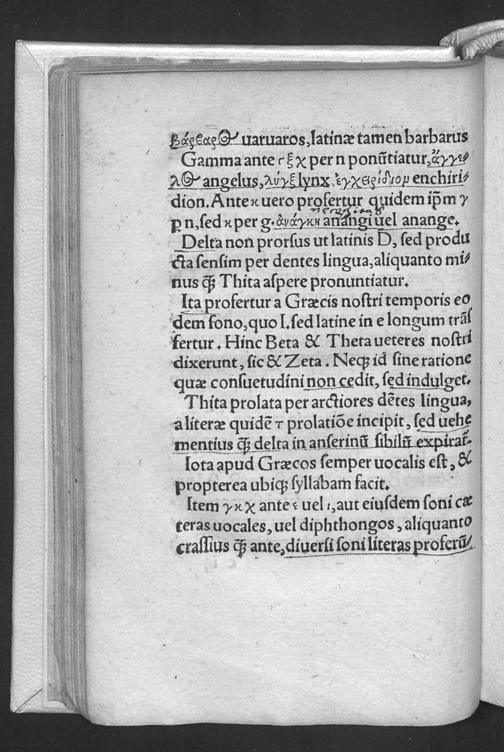 βάρβαρος uaruaros, latinæ tamen barbarus
Gamma ante γ ξ χ per n ponũtiatur, ἄγγε-
λος angelus, λύγξ lynx, ἐγχειρίδιον enchiri⸗
dion. Ante κ uero profertur quidem ip̃m γ
ꝑ n, sed κ per g. ἀνάγκη anangi uel anange.
Delta non prorsus ut latinis D, sed produ
cta sensim per dentes lingua, aliquanto mi⸗
nus q̃ꝫ Thita aspere pronuntiatur.
Ita profertur a Græcis nostri temporis eo
dem sono, quo I, sed latine in e longum trãs
fertur. Hinc Beta & Theta ueteres nostri
dixerunt, sic & Zeta. Neqꝫ id sine ratione
quæ consuetudini non cedit, sed indulget.
Thita prolata per arctiores dẽtes lingua,
a literæ quidẽ τ prolatiõe incipit, sed uehe
mentius q̃ꝫ delta in anserinũ sibilũ expirat̃.
Iota apud Græcos semper uocalis est, &
propterea ubiqꝫ syllabam facit.
Item γ κ χ ante ε uel ι, aut eiusdem soni cæ
teras uocales, uel diphthongos, aliquanto
crassius q̃ꝫ ante, diuersi soni literas proferũ⸗